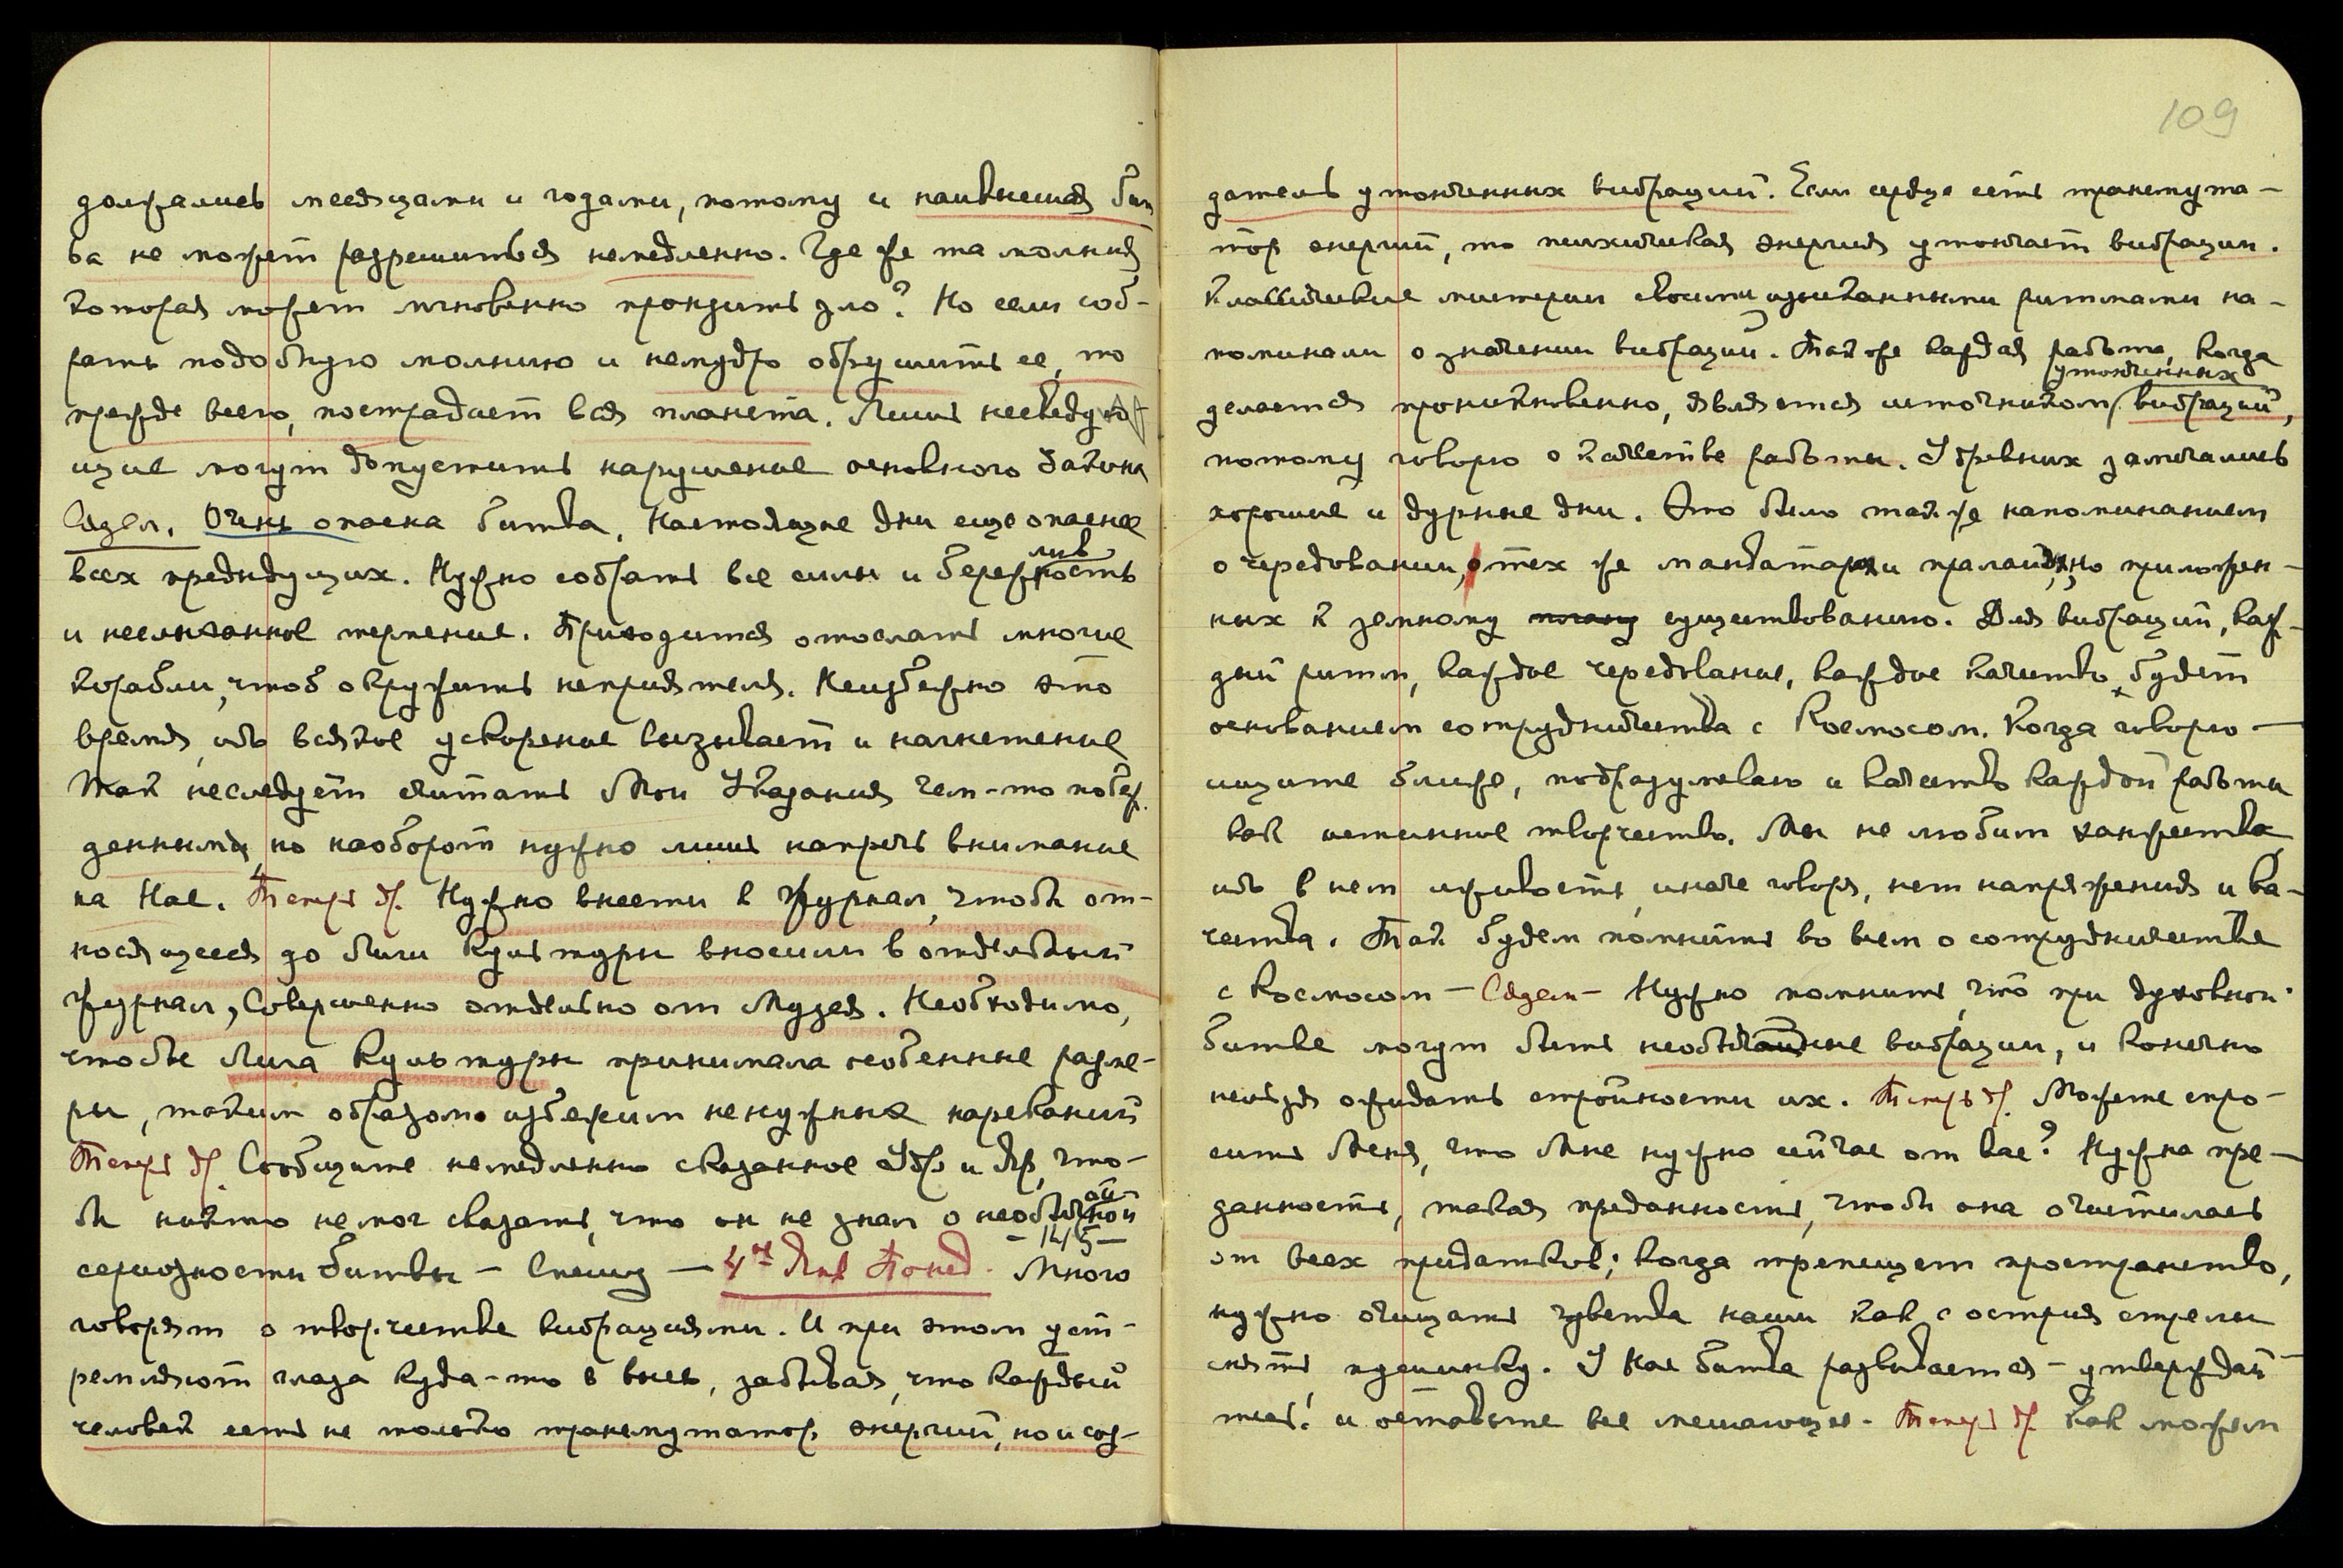 должались месяцами и годами, потому и наивысшая бит
ва не может разрешиться немедленно. Где же та молния,
которая может мгновенно пронзить зло? Но если соб-
рать подобную молнию и немудро обрушить ее, то
прежде всего, пострадает вся планета. Лишь несведую-
щие могут допустить нарушение основного Закона
Сядем. Очень опасна битва. Настоящие дни еще опаснее
лив
всех предыдущих. Нужно собрать все силы и бережность
и неслыханное терпение. Приходится отослать многие
корабли, чтоб окружить неприятеля. Неизбежно это
время, ибо всякое ускорение вызывает и нагнетение
Так не следует считать Мои Указания чем-то повер.
денными, но наоборот нужно лишь напречь внимание
на Нас. Теперь др. Нужно внести в журнал, чтобы от-
носящееся до Лиги Культуры вносили в отдельный
журнал, совершенно отдельно от Музея. Необходимо,
чтобы Лига Культуры принимала особенные разме-
ры, таким образом избежим ненужных нареканий
Теперь др. Сообщите немедленно сказанное Удр. и Яр, что-
бы никто не мог сказать, что он не знал о необычной
ай
- 145 -
серьозности битвы - Спешу - 4го Янв Понед. Много
говорят о творчестве вибрациями. И при этом уст-
ремляют глаза куда-то в высь, забывая, что каждый
человек есть не только трансмутатор энергий, но и соз-
109
датель утонченных вибраций. Если сердце есть трансмута-
тор энергий, то психическая энергия утончает вибрации.
Классические мистерии своими изысканными ритмами на-
поминали о значении вибраций. Так же каждая работа, когда
утонченных
делается проникновенно, является источником вибраций,
потому говорю о качестве работы. У древних замечались
хорошие и дурные дни. Это было также напоминанием
о чередовании, о тех же мантатарах и пралайях, но приложен-
ных к земному плану существованию. Для вибраций, каж-
дый ритм, каждое чередование, каждое качество будет
основанием сотрудничества с Космосом. Когда говорю -
ищите ближе, подразумеваю и качество каждой работы
как истинное творчество. Мы не любим ханжества,
ибо в нем лживость, иначе говоря, нет напряжения и ка-
чества. Так будем помнить во всем о сотрудничестве
с Космосом - Сядем - Нужно помнить, что при духовной
битве могут быть необычайные вибрации, и конечно
нельзя ожидать стройности их. Теперь др. Можете спро-
сить Меня, что Мне нужно сейчас от вас? Нужна пре-
данность, такая преданность, чтобы она очистилась
от всех придатков; когда трепещет пространство,
нужно очищать чувства наши как с острия стрелы
снять пушинку. У Нас битва развивается - утверждай-
тесь! и оставьте все мешающее. Теперь др. Как можем